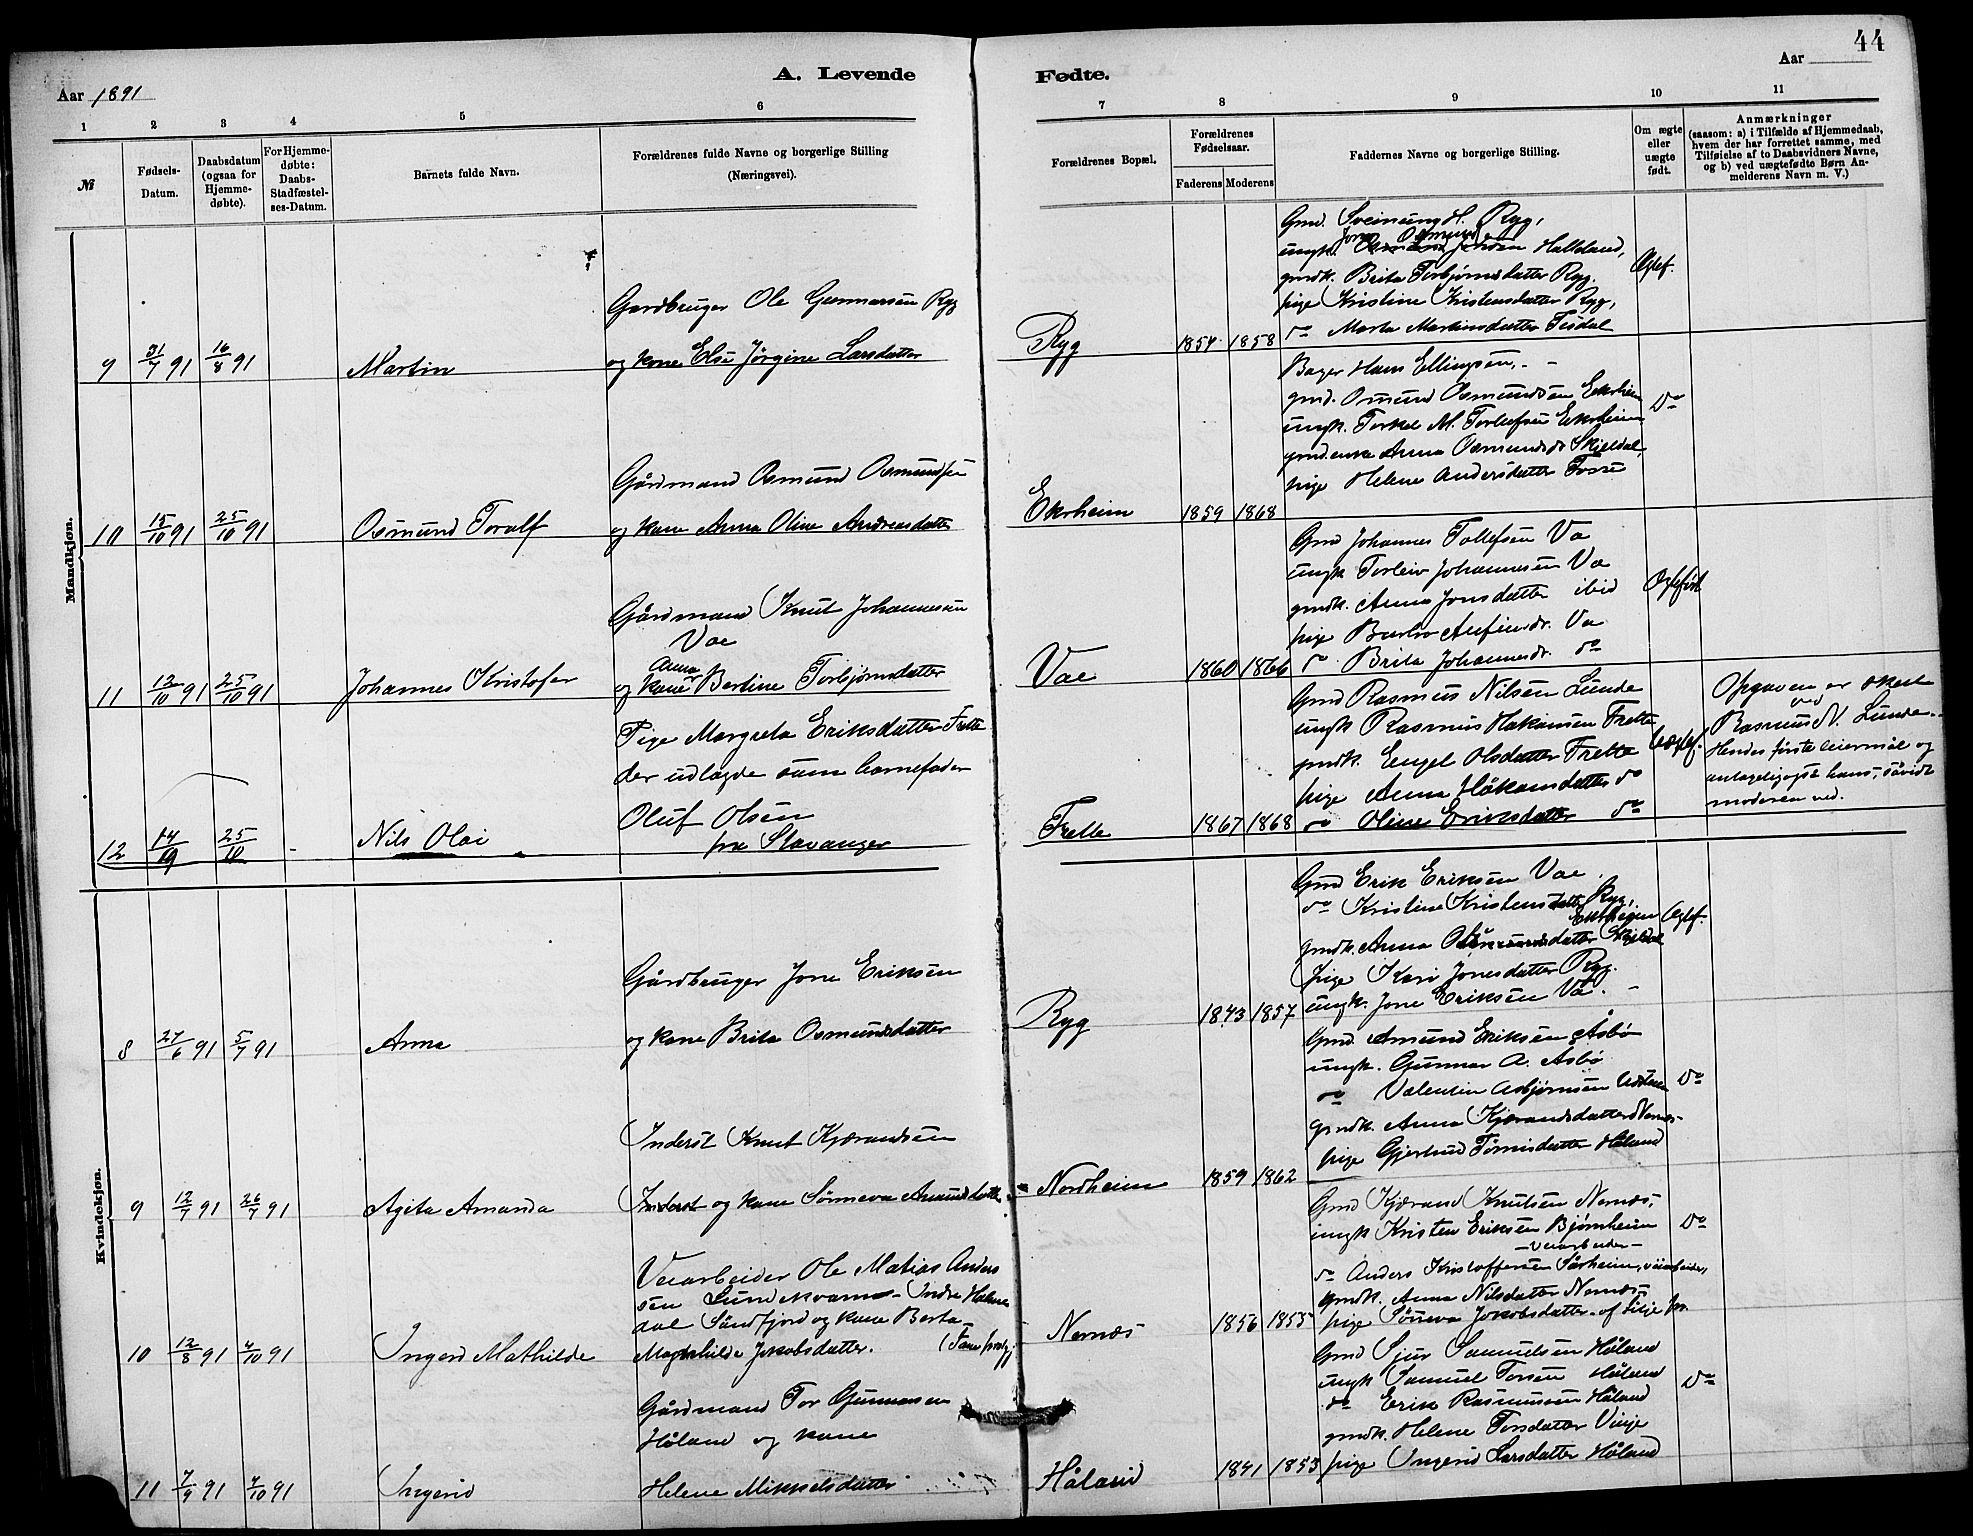 44
A. Levende
Fødte.
Aar 1891
Aar
1 2 3 4 5 6 7 8 9 10 11
№
Fødsels-Datum.
Daabsdatum (ogsaa for Hjemmedøbte).
For Hjemmedøbte: Daabs-Stadfæstelses-Datum.
Barnets fulde Navn.
Forældrenes fulde Navne og borgerlige Stilling (Næringsvei).
Forældrenes Bopæl.
Forældrenes Fødselsaar.
Faderens Moderens
Faddernes Navne og borgerlige Stilling
Om ægte eller uægte født.
Anmærkninger
(saasom: a) i Tilfælde af Hjemmedaab, hvem der har forrettet samme, med Tilføielse af to Daabsvidners Navne, og b) ved uægtefødte Børn Anmelderens Navn m. V.)
Mandkjøn.
9 31/7 91 16/8 91 Martin
Gardbruger Ole Gunnarsen Ryg
og kone Else Jørgine Larsdatter
Ryg 1854 1858
Gmd. Sveinung H. Ryg,
ungk. Jone Osmundsen Halleland,
gmdk. Brita Torbjørnsdatter Ryg.
pige Kristine Kristensdatter Ryg,
do Marta Martinsdatter Tisdal
Ægtef.
10 15/10 91 25/10 91 Osmund Toralf
Gårdmand Osmund Osmundsen
og kone Anna Oline Andreasdatter
Ekrheim 1859 1868
Bager Hans Ellingsen,
gmd. Osmund Osmundsen Ekrheim
ungk. Torkel M. Torleifsen Ekrheim
gmd.enke Anna Osmundsdr Skjeldal
pige Helene Andersdatter Tosse
Do
11 12/10 91 25/10 91 Johannes Kristofer
Gårdmand Knut Johannesen
Vae
og kone Anna Bertine Torbjørnsdatter
Vae 1860 1866
Gmd Johannes Tollefsen Va
ungk Torleiv Johannesen Va
gmdk. Anna Jonsdatter ibid
pige Barbro Anfinsdr. Va
do Brita Johannesdr. do
Ægtefødt
12 14/10 25/10 - Nils Olai
Pige Margreta Eriksdatter Frette
der udlagde som barnefader
Oluf Olsen
fra Stavanger
Frette 1867 1868
Gmd Rasmus Nilsen Lunde
ungk Rasmus Hakansen Frette
gmdk. Engel Olsdatter Frette
pige Anna Håkonsdatter do
do Oline Eriksdatter do
Uægtef.
Opgaven er skeet
ved
Rasmus N. Lunde.
Hendes første leiermål og
antageligogså hans, såvidt
moderen ved.
Kvindekjøn.
8 27/6 91 5/7 91 Anna
Gårdbruger Jone Eriksen
og kone Brita Osmundsdatter
Ryg 1843 1857
Gmd Erik Eriksen Vae
do Kristine Kristensdatter Ryg,
gmdk. Anna Skjeldal
pige Kari Jonesdatter Ryg.
ungk. Jone Eriksen Va.
Ægtef.
9 12/7 91 26/7 91 Agita Amanda
Inderst Knut Kjærandsen
Inderst og kone Sønneva Amundsdatter
Nordheim 1859 1862
Gmd. Amund Eriksen Åsbø
ungk. Gunnar A. Åsbø
do Valentin Asbjørnsen
gmdk. Anna Kjærandsdatter Nernæs
pige Gjertrud Tørrisdatter Håland
Do
10 12/8 91 4/10 91 Ingerd Mathilde
Veiarbeider Ole Matias Anders
sen Lundekvam - Indre Holme
dal Søndfjord og kone Berta
Magnhilde Jakobsdatter.
Nernæs 1856 1855
Gmd Kjærand Knutsen Nernæs,
ungk Kristen Eriksen Bjørnheim
- Veiarbeider -
do Anders Kristoffersen Sårheim, veiarbeider,
gmdk. Anna Nilsdatter Nernæs
pige Sønneva Jakobsdatter
Do
11 7/9 91 4/10 91 Ingerid
Gårdmand Tor Gunnarsen
Håland og kone
Helene Mikkelsdatter
Håland 1841 1853
Gmd Sjur Samuelsen Håland
ungk Samuel Torsen Håland
do Erik Rasmussen Håland
gmdk. Helene Torsdatter Vinje
pige Ingerid Larsdatter Håland
Do